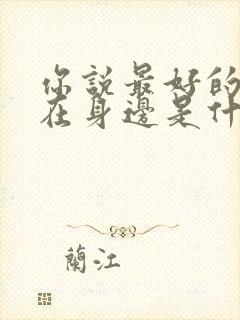 你說最好的
在身邊是什
蘭江